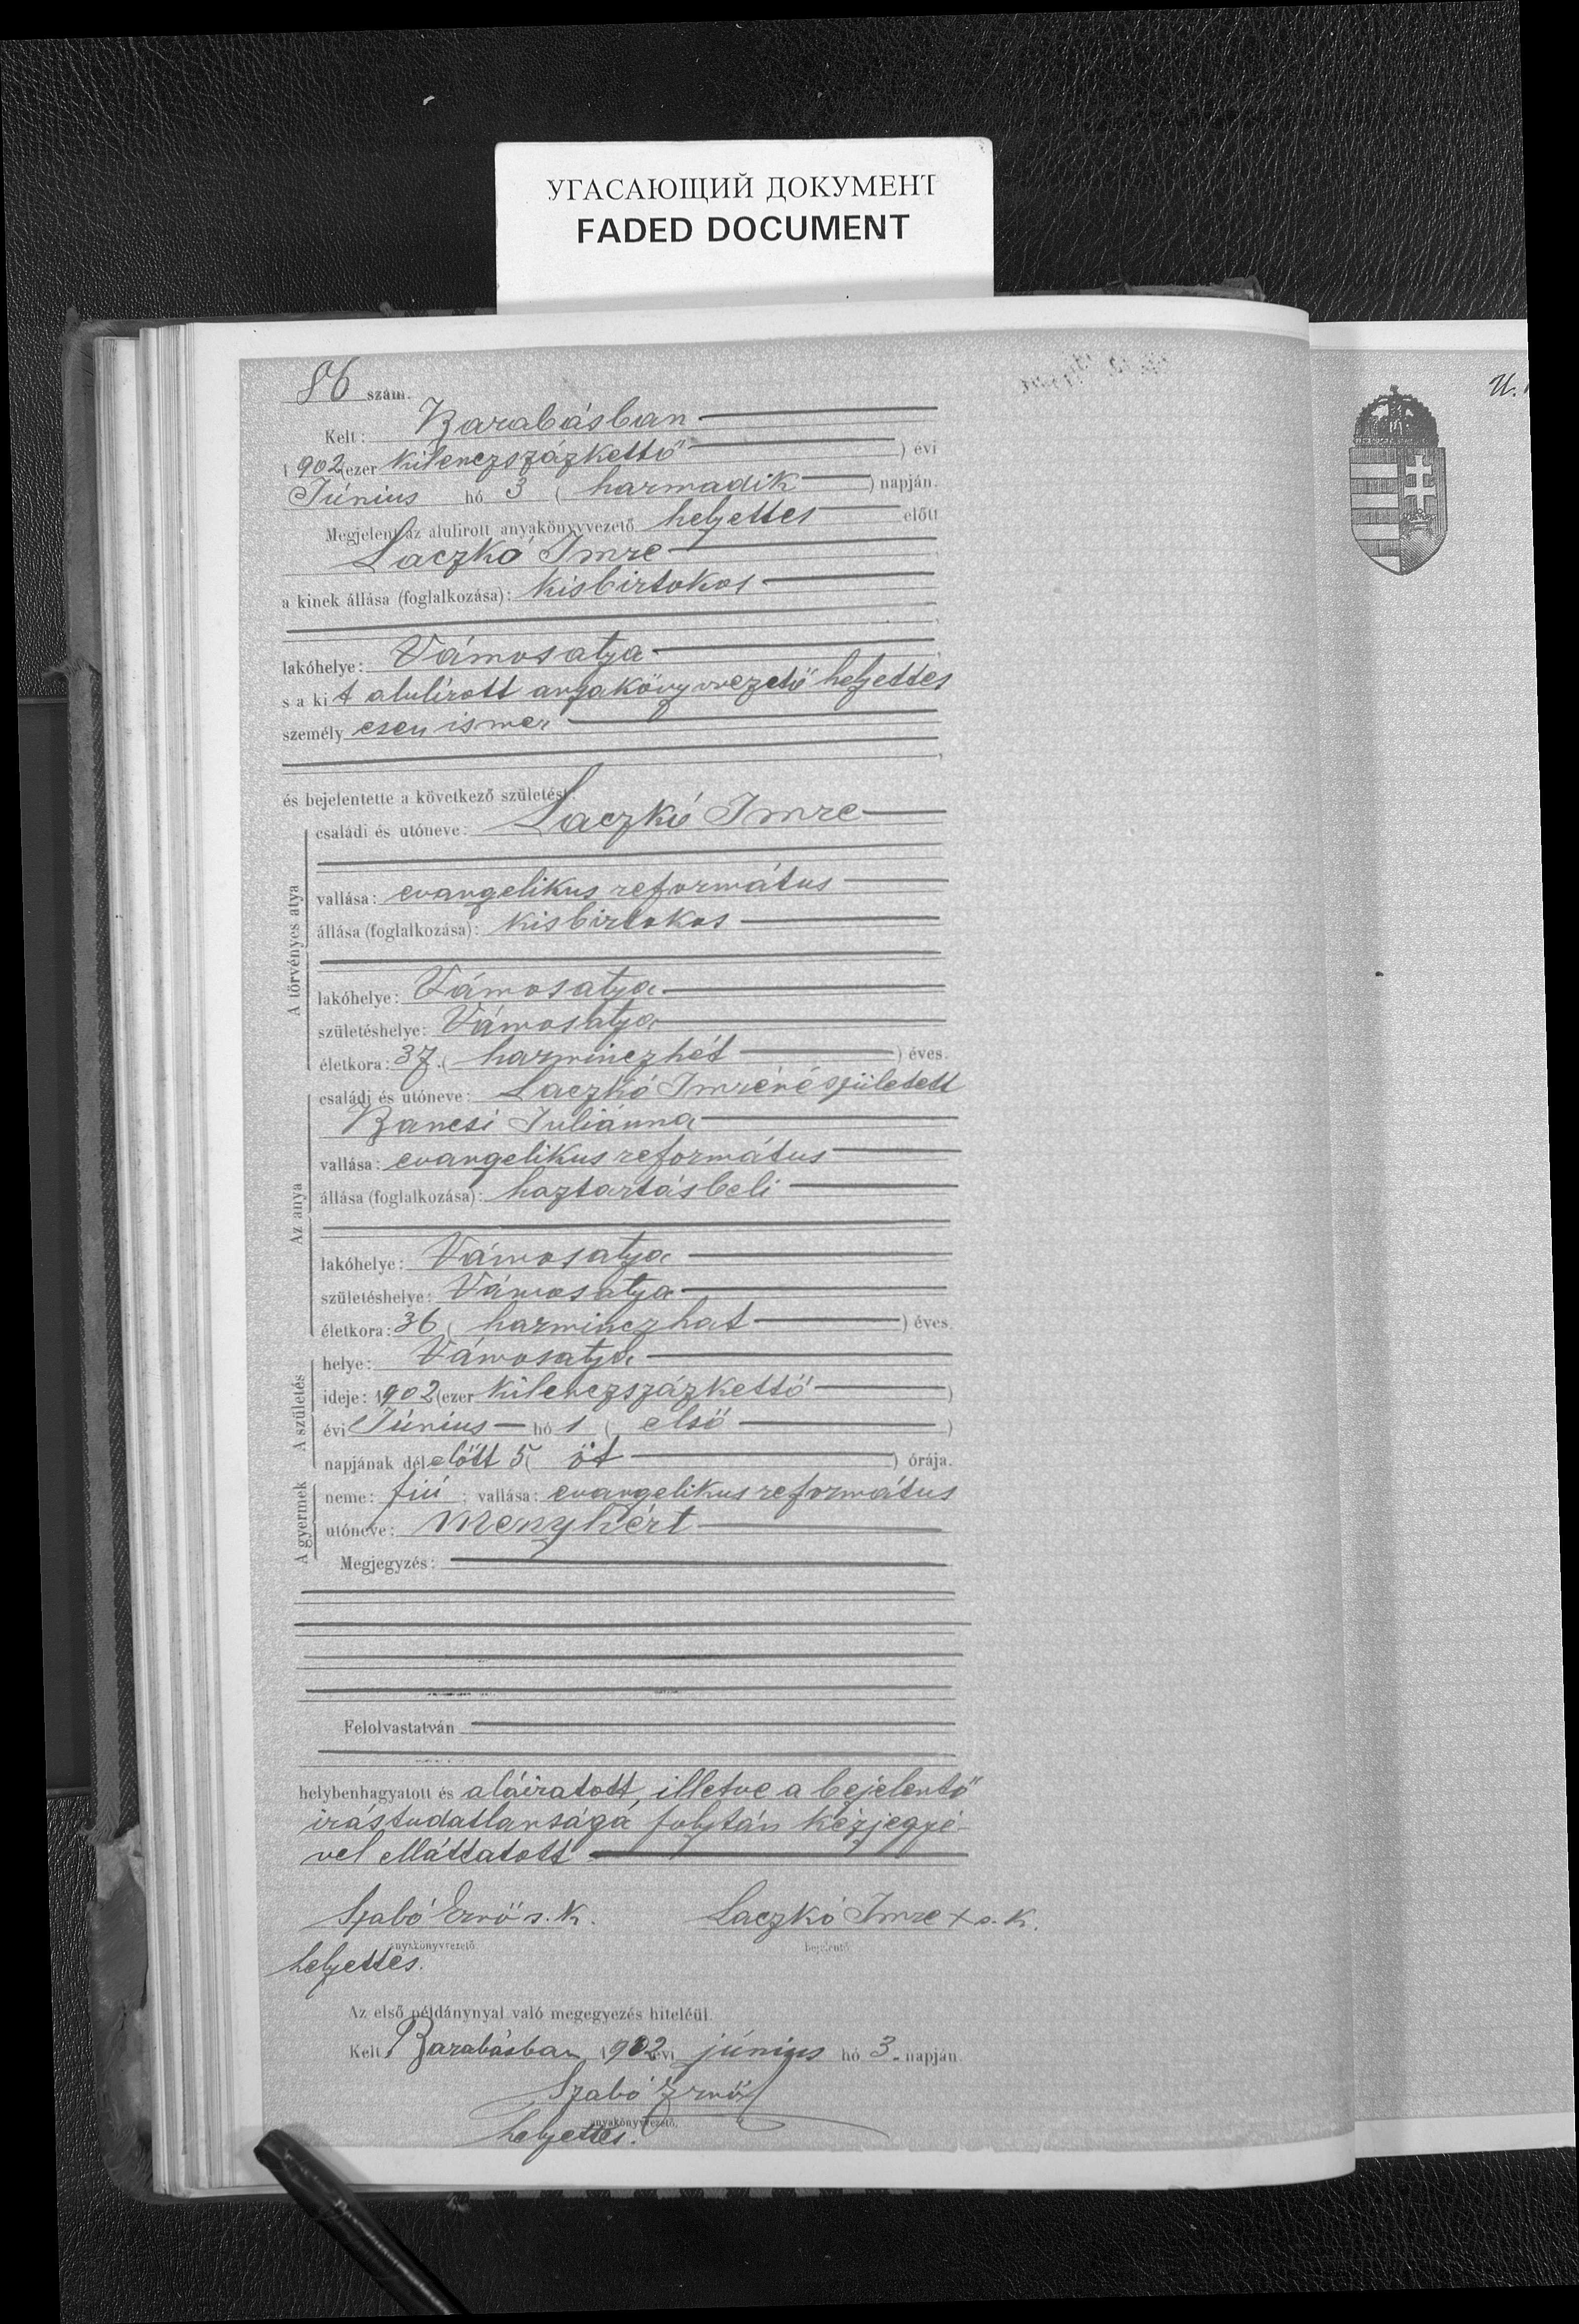 УГАСАЮЩИЙ ДОКУМЕНТ
FADED DOCUMENT
86 szám.
Kelt: Barabásban
1902 (ezer kilenczszázkettő) évi
Június hó 3 (harmadik) napján.
Megjelent az alulirott anyakönyvvezető helyettes előtt
Laczkó Imre
a kinek állása (foglalkozása): kisbirtokos
lakóhelye: Vámosatya
s a kit alulírott anyakönyvvezető helyettes
személyesen ismer
és bejelentette a következő születést:
A törvényes atya
családi és utóneve: Laczkó Imre
vallása: evangelikus református
állása (foglalkozása): kisbirtokos
lakóhelye: Vámosatya
születéshelye: Vámosatya
életkora: 37. (harminczhét) éves.
Az anya
családi és utóneve: Laczkó Imréné született
Bancsi Juliánna
vallása: evangelikus református
állása (foglalkozása): haztartásbeli
lakóhelye: Vámosatya
születéshelye: Vámosatya
életkora: 36 (harminczhat) éves.
A születés
helye: Vámosatya
ideje: 1902 (ezer kilenczszázkettő)
évi Június hó 1 (első)
napjának délelőtt 5 (öt) órája.
A gyermek
neme: fiú; vallása: evangelikus református
utóneve: Menyhért
Megjegyzés:
Felolvastatván
helybenhagyatott és aláiratott, illetve a bejelentő
irástudatlansága folytán kézjegyé-
vel elláttatott
Szabó Ernő s. k. Laczkó Imre + s. k.
anyakönyvvezető bejelentő
helyettes.
Az első példánynyal való megegyezés hiteléül.
Kelt Barabásban 1902 évi június hó 3. napján.
Szabó Ernő
anyakönyvvezető.
helyettes.